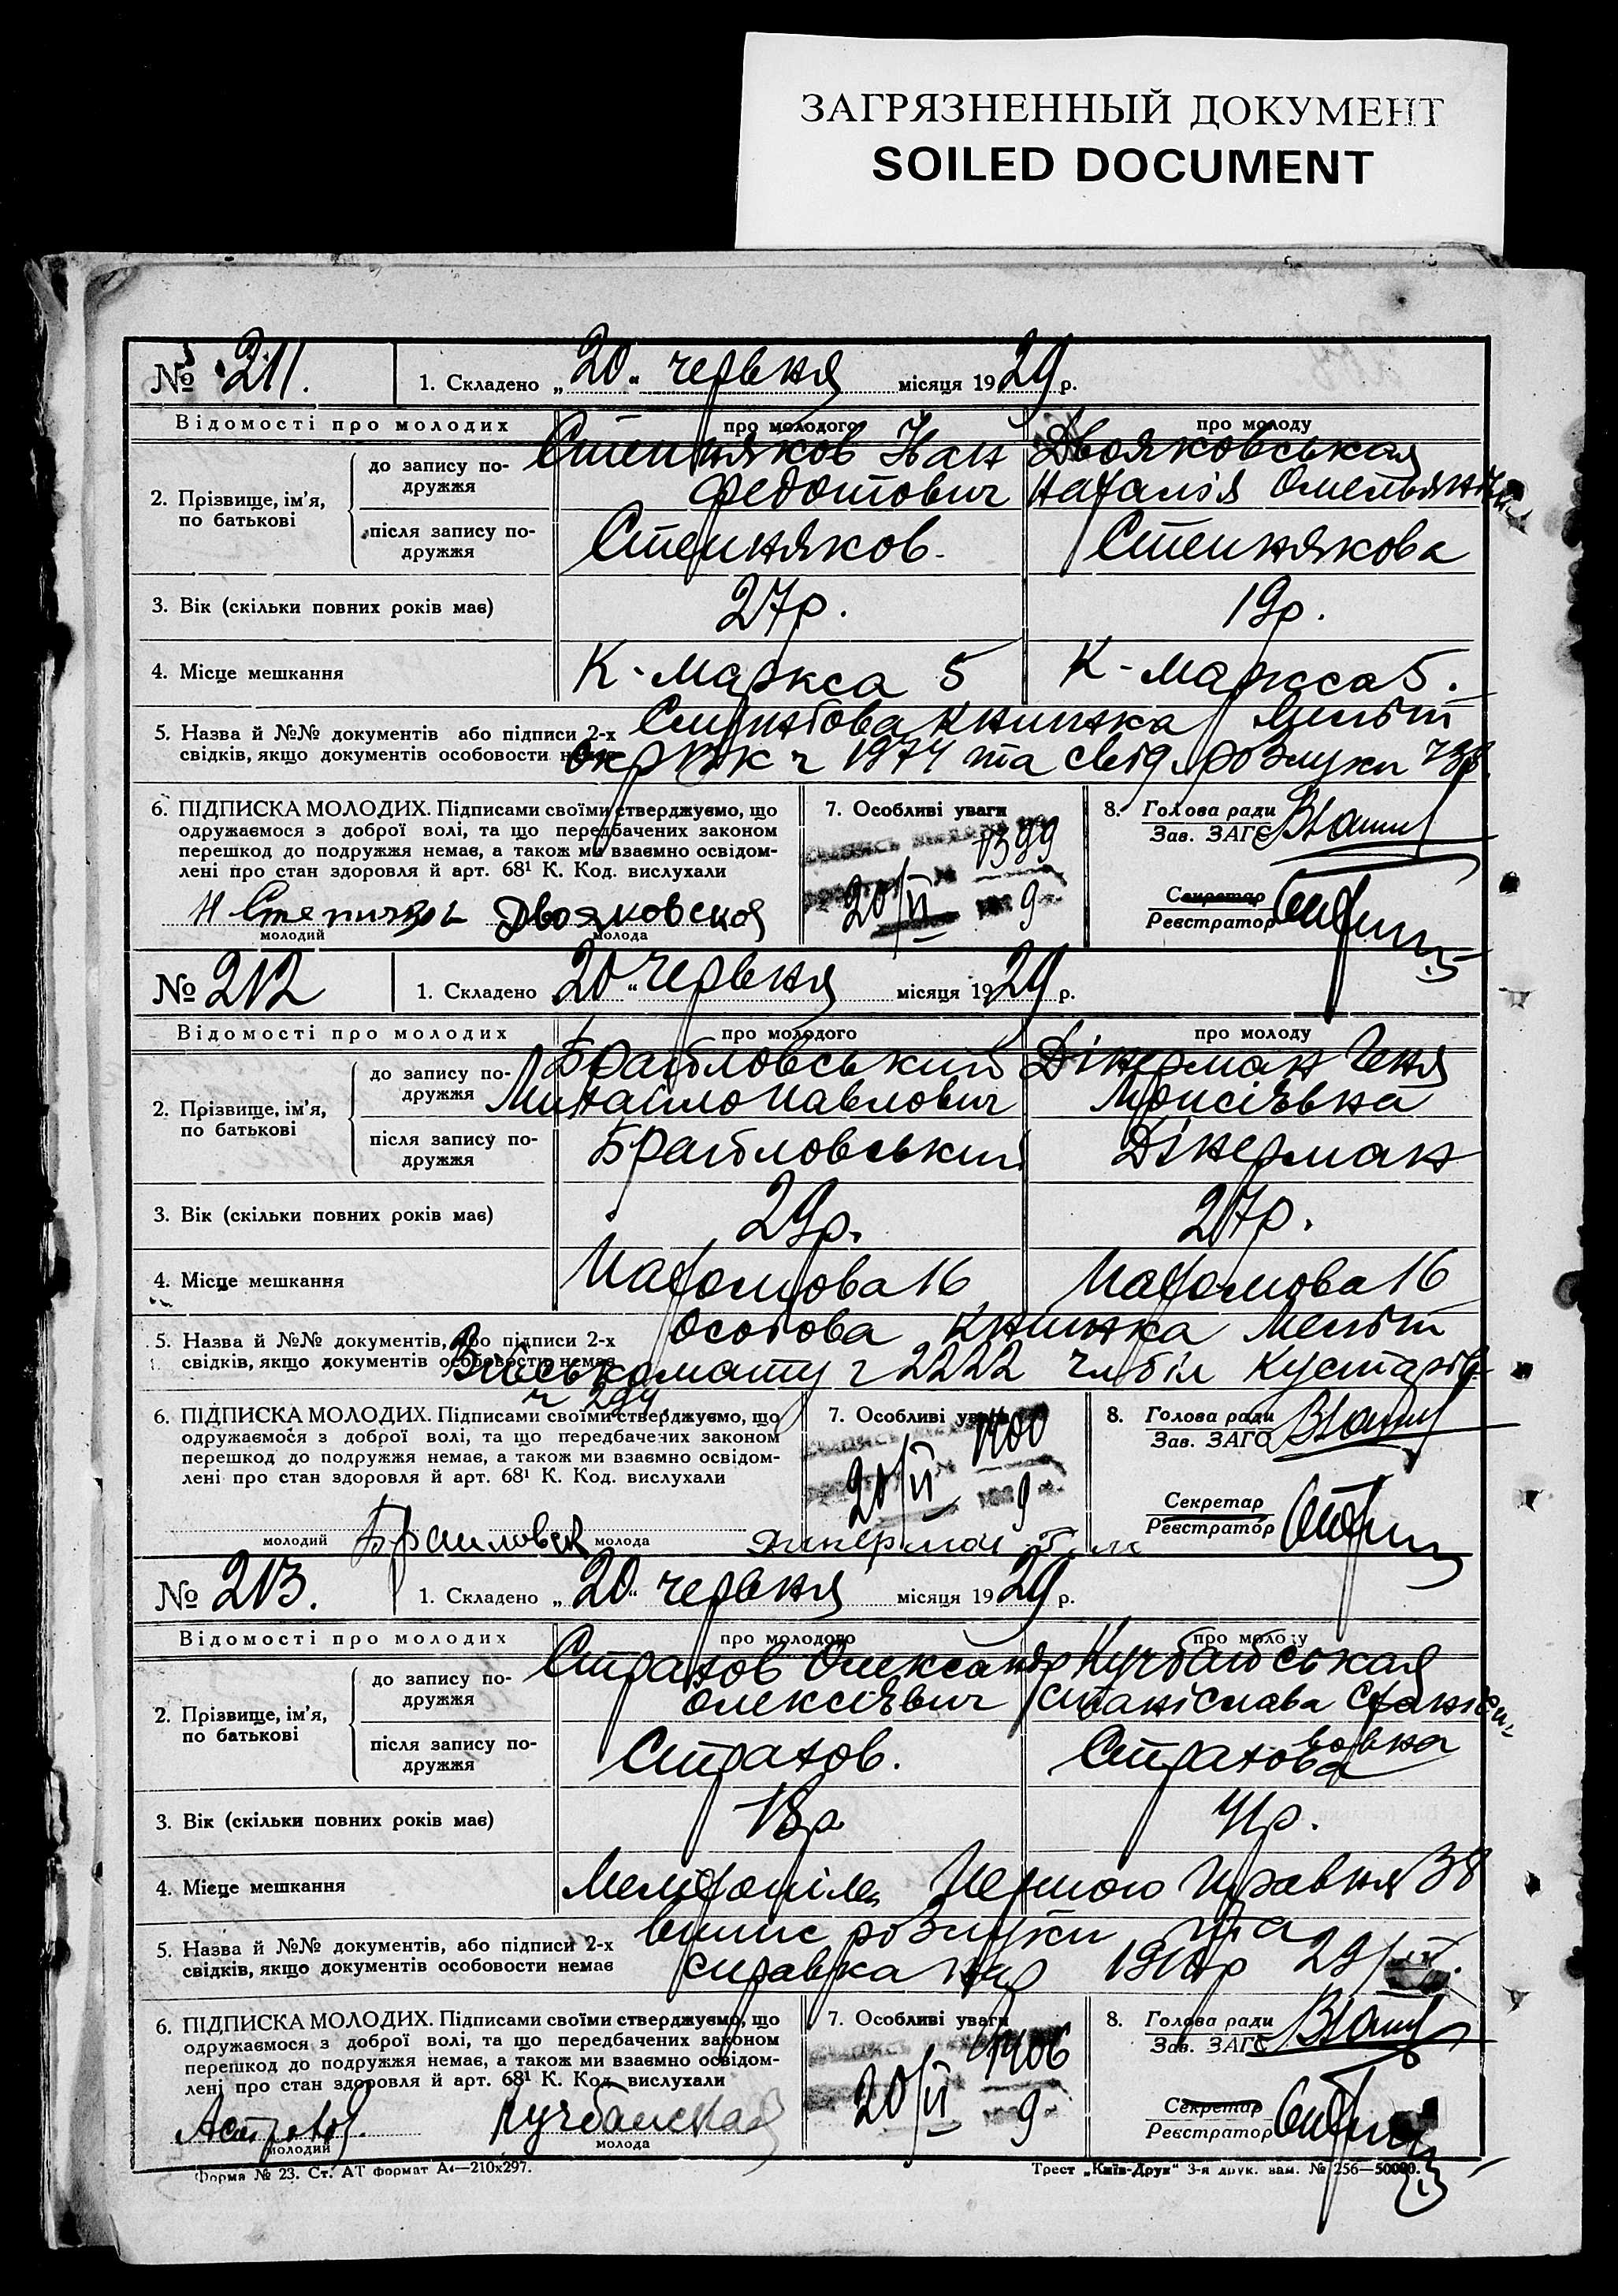 ЗАГРЯЗНЕННЫЙ ДОКУМЕНТ
SOILED DOCUMENT
№ 211. 1. Складено „20" червня місяця 1929 р.
Відомості про молодих про молодого про молоду
2. Прізвище, ім'я, по батькові
до запису подружжя
Степняков Іван Двояковськая
Федотович Наталія Омельянівна
після запису подружжя
Степняков Степнякова
3. Вік (скільки повних років має) 27р. 19р.
4. Місце мешкання К-Маркса 5 К-Маркса 5.
5. Назва й №№ документів або підписи 2-х книжка Меліт
свідків, якщо документів особовости немає ч 1974 та свід розлуки
6. ПІДПИСКА МОЛОДИХ. Підписами своїми стверджуємо, що
одружаємося з доброї волі, та що передбачених законом
перешкод до подружжя немає, а також ми взаємно освідом-
лені про стан здоровля й арт. 68¹ К. Код. вислухали
7. Особливі уваги
1399
20/VI 9
8. Голова ради
Зав. ЗАГС
Секретар
Реєстратор
Двояковская
молодий молода
№ 212 1. Складено 20 " червня місяця 1929 р.
Відомості про молодих про молодого про молоду
2. Прізвище, ім'я, по батькові
до запису подружжя
Браіловський Дінерман Геня
Михайло Павлович Мойсіївна
після запису подружжя
Браіловський Дінерман
3. Вік (скільки повних років має) 29р. 27р.
4. Місце мешкання 16 16
5. Назва й №№ документів, або підписи 2-х Особова книжка Меліт
свідків, якщо документів особовости немає Військомату ч 2222 чл біл кустарів
ч 294
6. ПІДПИСКА МОЛОДИХ. Підписами своїми стверджуємо, що
одружаємося з доброї волі, та що передбачених законом
перешкод до подружжя немає, а також ми взаємно освідом-
лені про стан здоровля й арт. 68¹ К. Код. вислухали
7. Особливі уваги
1400
20/VI 9
8. Голова ради
Зав. ЗАГС
Секретар
Реєстратор
молодий молода
№ 213. 1. Складено „20" червня місяця 1929 р.
Відомості про молодих про молодого про молоду
2. Прізвище, ім'я, по батькові
до запису подружжя
Страхов Олександр Кучбайськая
Олексієвич Станіслава Станісла-
вовна
після запису подружжя
Страхов. Страхова
3. Вік (скільки повних років має) 41р.
4. Місце мешкання Мелітопіль Першого Травня 38
5. Назва й №№ документів, або підписи 2-х випис розлуки та
свідків, якщо документів особовости немає справка
6. ПІДПИСКА МОЛОДИХ. Підписами своїми стверджуємо, що
одружаємося з доброї волі, та що передбачених законом
перешкод до подружжя немає, а також ми взаємно освідом-
лені про стан здоровля й арт. 68¹ К. Код. вислухали
7. Особливі уваги
1406
20/VI 9
8. Голова ради
Зав. ЗАГС
Секретар
Реєстратор
Кучбайская
молодий молода
Форма № 23. Ст. АТ формат А₄—210х297.
Трест „Київ-Друк" 3-я друк. зам. № 256—50000.